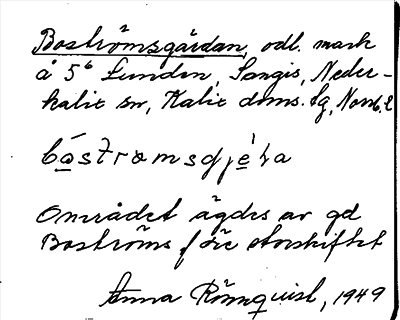 Boströmsgärdan, odl. mark
å 5⁶ Lunden, Sangis, Neder-
kalix sn, Kalix doms. lg, Norrb. l
båstromsgjeɹa
Området ägdes av gd
Boströms före storskiftet
Anna Rönnquist, 1949